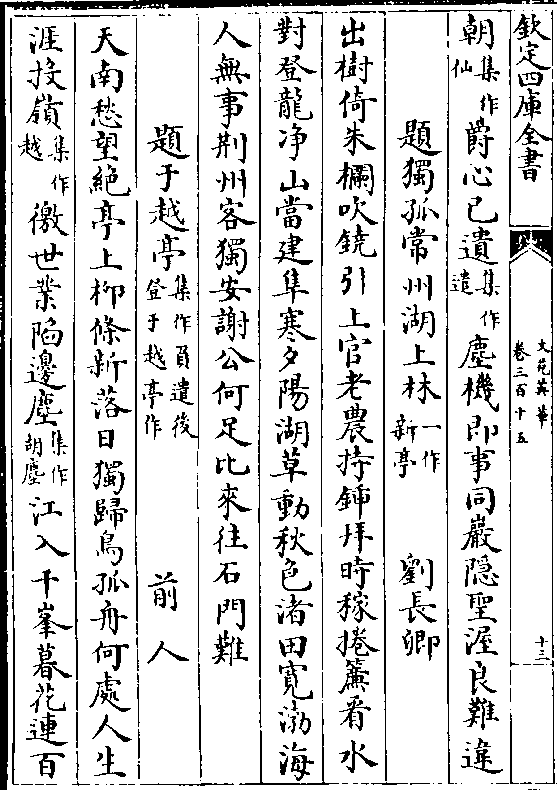 欽定四庫全書
文苑英華
卷三百十五
十三
朝集作仙爵心已遺集作遣塵機即事同巖隱聖渥良難違
題獨孤常州湖上林一作新亭 劉長卿
出樹倚朱欄吹鐃引上官老農持鍤拜時稼捲簾看水
對登龍净山當建隼寒夕陽湖草動秋色渚田寬渤海
人無事荆州客獨安謝公何足比來往石門難
題于越亭集作負遣後登于越亭作 前人
天南愁望絶亭上柳條新落日獨歸鳥孤舟何處人生
涯投嶺集作越徼世業陷邊塵集作胡塵江入千峯暮花連百